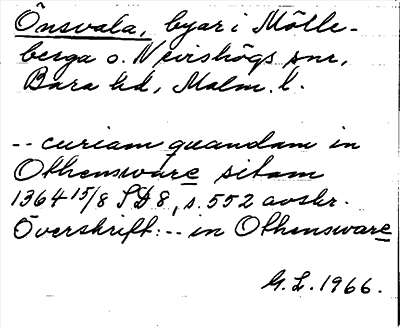 Önsvala, byar i Mölle-
berga o. Nevishögs snr,
Bara hd, Malm. l.
-- curiam quandam in
Othensware sitam
1364 15/8 SD 8, s. 552 avskr.
Överskrift: -- in Othensware
G.L. 1966.